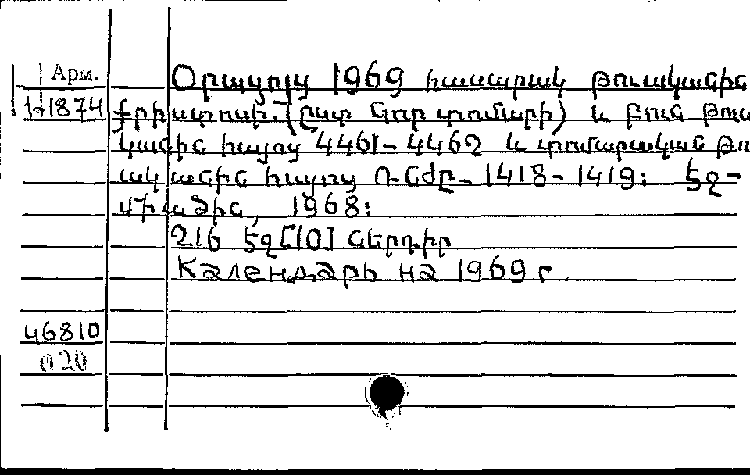 Арм.
1-1874
Օրացույց 1969 հասարակ թուականին
քրիստոսի. (ըստ նոր տոմարի) և բուն թուա
կանին հայոց 4461-4462 և տոմարական թու
ականին հայոց ՌՆԺԸ- 1418-1419: Էջ-
միածին, 1968:
216 էջ [10] ներդիր
Календарь на 1969 г.
46810
п20